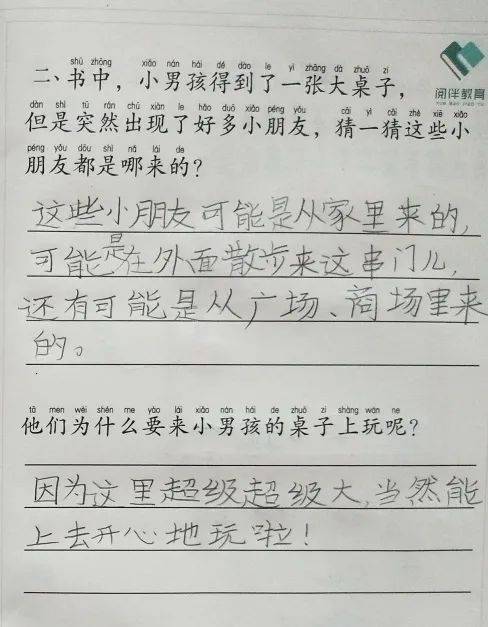 shū zhōng xiǎo nán hái dé dào le yì zhāng dà zhuō zi
二、书中，小男孩得到了一张大桌子，
阅伴教育
dàn shì tū rán chū xiàn le hǎo duō xiǎo péng yǒu cāi yì cāi zhè xiē xiǎo
但是突然出现了好多小朋友，猜一猜这些小
péng yǒu dōu shì nǎ lái de
朋友都是哪来的？
这些小朋友可能是从家里来的，
可能是在外面散步来这串门儿，
还有可能是从广场、商场里来
的。
tā men wèi shén me yào lái xiǎo nán hái de zhuō zi shàng wán ne
他们为什么要来小男孩的桌子上玩呢？
因为这里超级超级大，当然能
上去开心地玩啦！